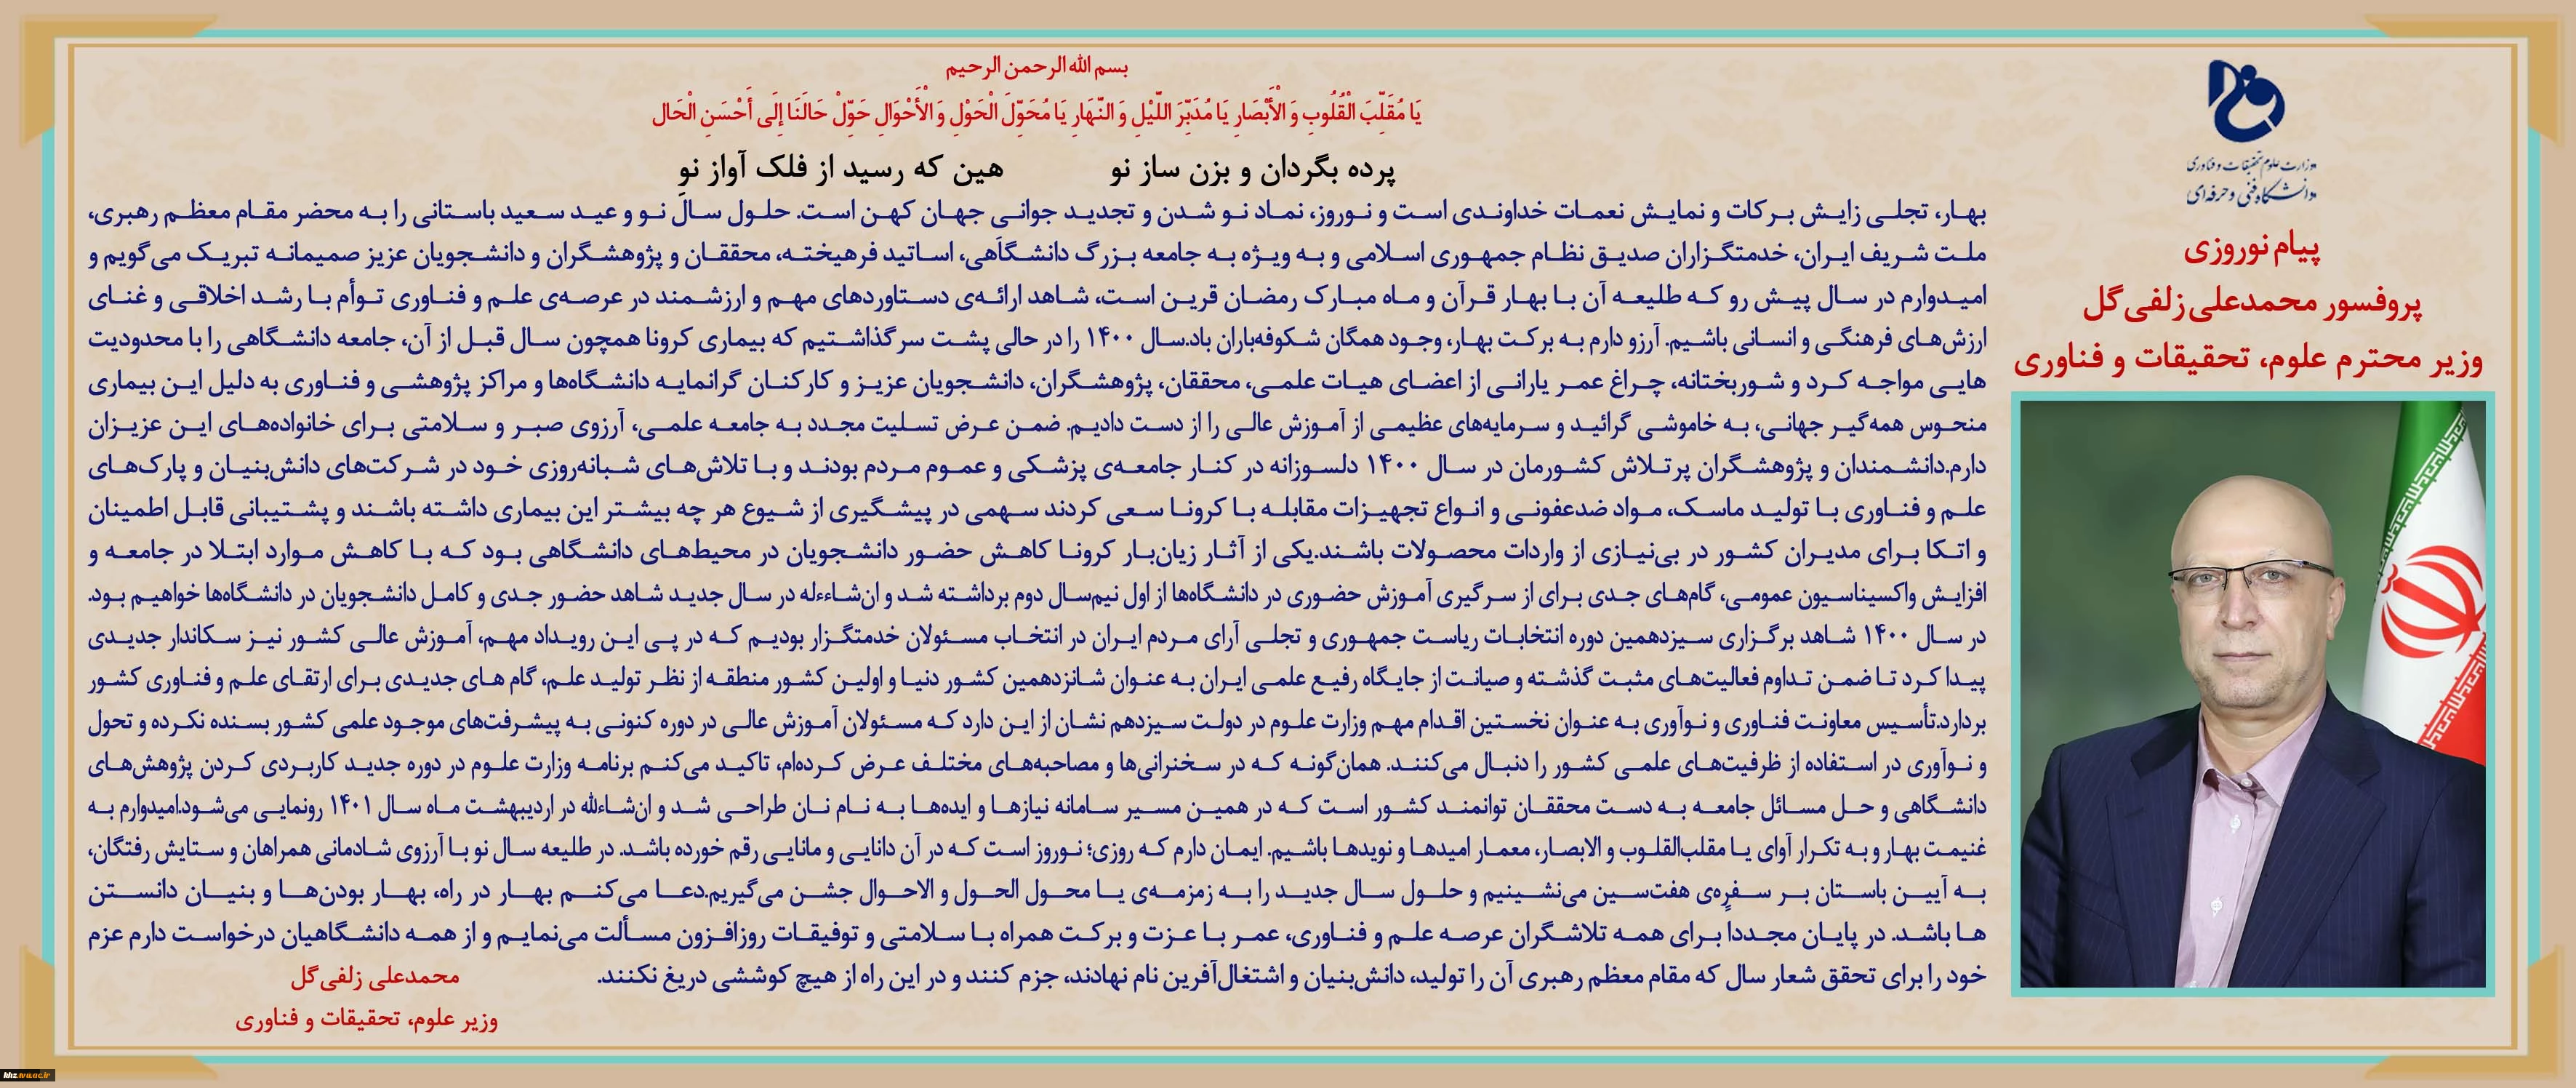 وزارت علوم تحقیقات و فناوری
دانشگاه فنی و حرفه‌ای
پیام نوروزی
پروفسور محمدعلی زلفی‌گل
وزیر محترم علوم، تحقیقات و فناوری
بسم الله الرحمن الرحیم
یَا مُقَلِّبَ الْقُلُوبِ وَ الْأَبْصَارِ یَا مُدَبِّرَ اللَّیْلِ وَ النَّهَارِ یَا مُحَوِّلَ الْحَوْلِ وَ الْأَحْوَالِ حَوِّلْ حَالَنَا إِلَی أَحْسَنِ الْحَال
پرده بگردان و بزن ساز نو هین که رسید از فلک آواز نو
بهار، تجلی زایش برکات و نمایش نعمات خداوندی است و نوروز، نماد نو شدن و تجدید جوانی جهان کهن است. حلول سال نو و عید سعید باستانی را به محضر مقام معظم رهبری،
ملت شریف ایران، خدمتگزاران صدیق نظام جمهوری اسلامی و به ویژه به جامعه بزرگ دانشگاهی، اساتید فرهیخته، محققان و پژوهشگران و دانشجویان عزیز صمیمانه تبریک می‌گویم و
امیدوارم در سال پیش رو که طلیعه آن با بهار قرآن و ماه مبارک رمضان قرین است، شاهد ارائه‌ی دستاوردهای مهم و ارزشمند در عرصه‌ی علم و فناوری توأم با رشد اخلاقی و غنای
ارزش‌های فرهنگی و انسانی باشیم. آرزو دارم به برکت بهار، وجود همگان شکوفه‌باران باد.سال ۱۴۰۰ را در حالی پشت سر گذاشتیم که بیماری کرونا همچون سال قبل از آن، جامعه دانشگاهی را با محدودیت
هایی مواجه کرد و شوربختانه، چراغ عمر یارانی از اعضای هیات علمی، محققان، پژوهشگران، دانشجویان عزیز و کارکنان گرانمایه دانشگاه‌ها و مراکز پژوهشی و فناوری به دلیل این بیماری
منحوس همه‌گیر جهانی، به خاموشی گرائید و سرمایه‌های عظیمی از آموزش عالی را از دست دادیم. ضمن عرض تسلیت مجدد به جامعه علمی، آرزوی صبر و سلامتی برای خانواده‌های این عزیزان
دارم.دانشمندان و پژوهشگران پرتلاش کشورمان در سال ۱۴۰۰ دلسوزانه در کنار جامعه‌ی پزشکی و عموم مردم بودند و با تلاش‌های شبانه‌روزی خود در شرکت‌های دانش‌بنیان و پارک‌های
علم و فناوری با تولید ماسک، مواد ضدعفونی و انواع تجهیزات مقابله با کرونا سعی کردند سهمی در پیشگیری از شیوع هر چه بیشتر این بیماری داشته باشند و پشتیبانی قابل اطمینان
و اتکا برای مدیران کشور در بی‌نیازی از واردات محصولات باشند.یکی از آثار زیان‌بار کرونا کاهش حضور دانشجویان در محیط‌های دانشگاهی بود که با کاهش موارد ابتلا در جامعه و
افزایش واکسیناسیون عمومی، گام‌های جدی برای از سرگیری آموزش حضوری در دانشگاه‌ها از اول نیم‌سال دوم برداشته شد و ان‌شاءءله در سال جدید شاهد حضور جدی و کامل دانشجویان در دانشگاه‌ها خواهیم بود.
در سال ۱۴۰۰ شاهد برگزاری سیزدهمین دوره انتخابات ریاست جمهوری و تجلی آرای مردم ایران در انتخاب مسئولان خدمتگزار بودیم که در پی این رویداد مهم، آموزش عالی کشور نیز سکاندار جدیدی
پیدا کرد تا ضمن تداوم فعالیت‌های مثبت گذشته و صیانت از جایگاه رفیع علمی ایران به عنوان شانزدهمین کشور دنیا و اولین کشور منطقه از نظر تولید علم، گام های جدیدی برای ارتقای علم و فناوری کشور
بردارد.تأسیس معاونت فناوری و نوآوری به عنوان نخستین اقدام مهم وزارت علوم در دولت سیزدهم نشان از این دارد که مسئولان آموزش عالی در دوره کنونی به پیشرفت‌های موجود علمی کشور بسنده نکرده و تحول
و نوآوری در استفاده از ظرفیت‌های علمی کشور را دنبال می‌کنند. همان‌گونه که در سخنرانی‌ها و مصاحبه‌های مختلف عرض کرده‌ام، تاکید می‌کنم برنامه وزارت علوم در دوره جدید کاربردی کردن پژوهش‌های
دانشگاهی و حل مسائل جامعه به دست محققان توانمند کشور است که در همین مسیر سامانه نیازها و ایده‌ها به نام نان طراحی شد و ان‌شاءالله در اردیبهشت ماه سال ۱۴۰۱ رونمایی می‌شود.امیدوارم به
غنیمت بهار و به تکرار آوای یا مقلب‌القلوب و الابصار، معمار امیدها و نویدها باشیم. ایمان دارم که روزی؛ نوروز است که در آن دانایی و مانایی رقم خورده باشد. در طلیعه سال نو با آرزوی شادمانی همراهان و ستایش رفتگان،
به آیین باستان بر سفره‌ی هفت‌سین می‌نشینیم و حلول سال جدید را به زمزمه‌ی یا محول الحول و الاحوال جشن می‌گیریم.دعا می‌کنم بهار در راه، بهار بودن‌ها و بنیان دانستن
ها باشد. در پایان مجددا برای همه تلاشگران عرصه علم و فناوری، عمر با عزت و برکت همراه با سلامتی و توفیقات روزافزون مسألت می‌نمایم و از همه دانشگاهیان درخواست دارم عزم
خود را برای تحقق شعار سال که مقام معظم رهبری آن را تولید، دانش‌بنیان و اشتغال‌آفرین نام نهادند، جزم کنند و در این راه از هیچ کوششی دریغ نکنند.
محمدعلی زلفی‌گل
وزیر علوم، تحقیقات و فناوری